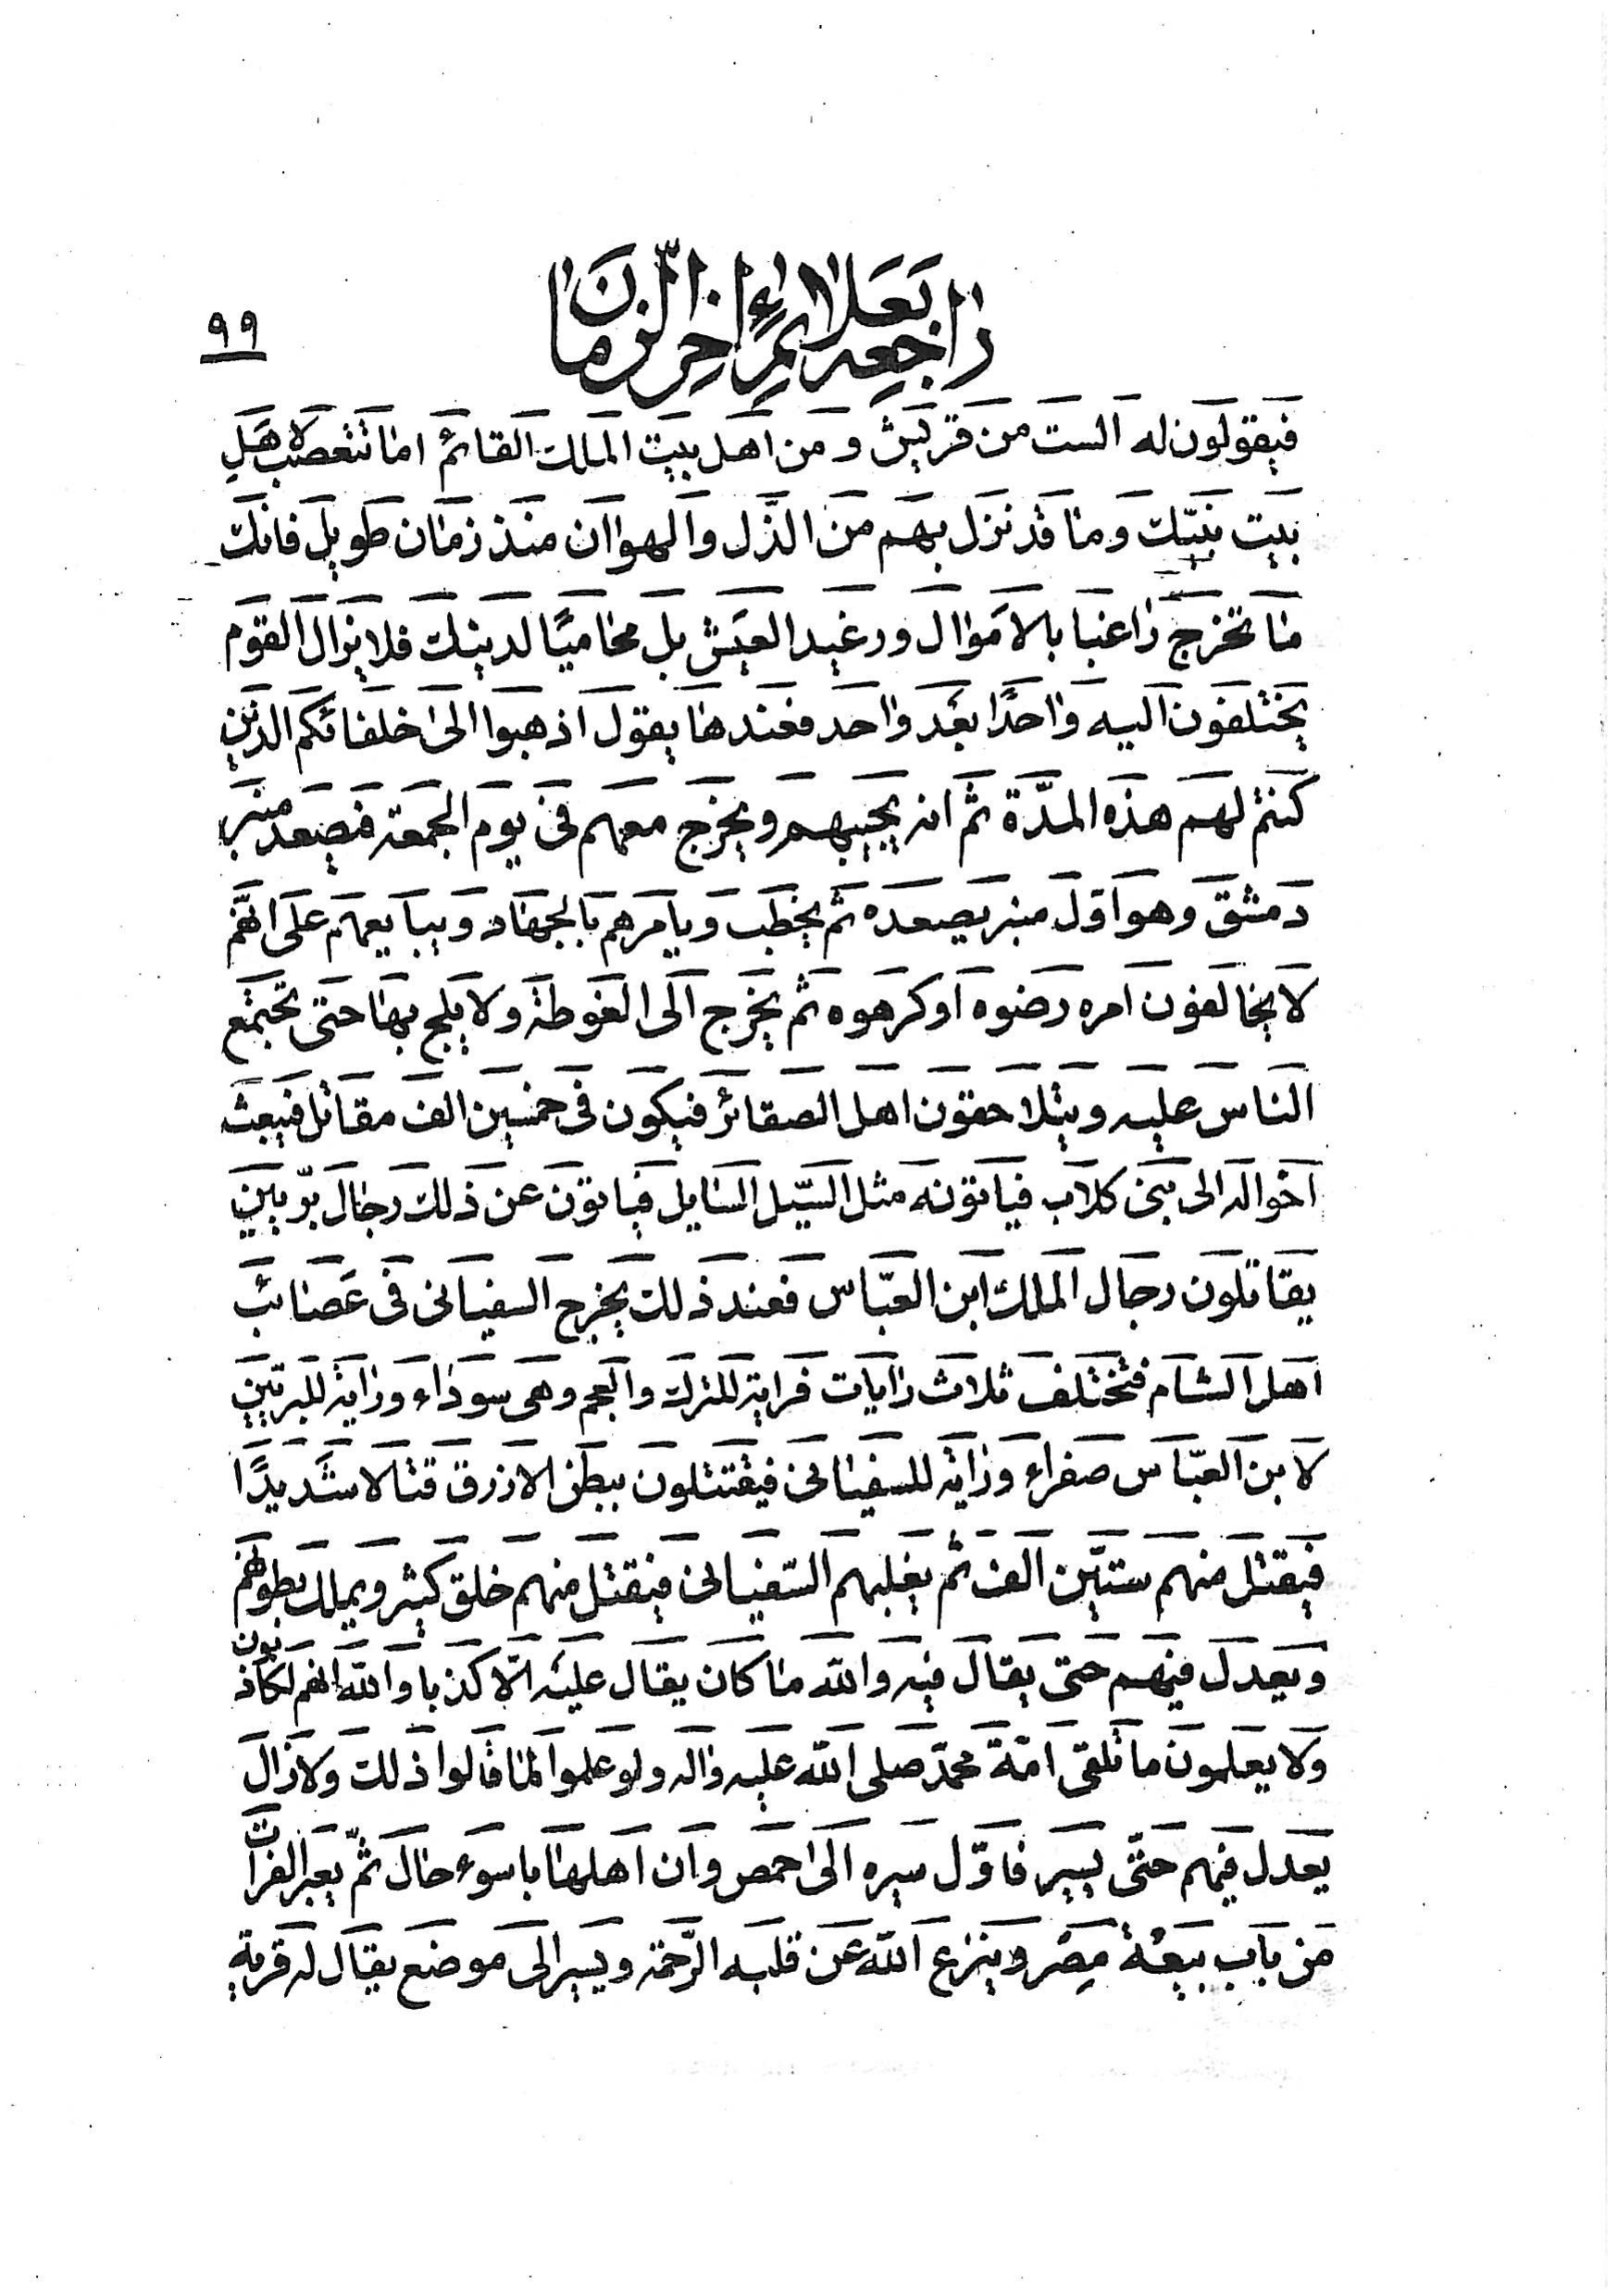 راجعه بعلائم اخر الزمان
٩٩
فيقولون له الست من قريش و من اهل بيت الملك القائم اما تتعصب لاهل
بيت نبيّك وما قد نزل بهم من الذّل والهوان منذ زمان طويل فانك
ما تخرج راغبا بالاموال ورغيد العيش بل محاميًا لدينك فلا يزال القوم
يختلفون اليه واحدًا بعد واحد فعندها يقول اذهبوا الى خلفائكم الذين
كنتم لهم هذه المدّة ثم انه يجيبهم ويخرج معهم فى يوم الجمعة فيصعد منبر
دمشق وهو اول منبر يصعده ثم يخطب ويامرهم بالجهاد ويبايعهم على انهم
لا يخالفون امره رضوه او كرهوه ثم يخرج الى الغوطة ولا يلج بها حتى تجتمع
الناس عليه ويتلاحقون اهل الصقائر فيكون فى خمسين الف مقاتل فيبعث
اخواله الى بنى كلاب فياتونه مثل السّيل السايل فياتون عن ذلك رجال بريين
يقاتلون رجال الملك ابن العبّاس فعند ذلك يخرج السفيانى فى عصائب
اهل الشام فتختلف ثلاث رايات فراية للترك والعجم وهى سوداء وراية للبريين
لابن العبّاس صفراء وراية للسفيانى فيقتتلون ببطن الازرق قتالا شديدًا
فيقتل منهم ستين الف ثم يغلبهم السّفيانى فيقتل منهم خلق كثير ويملك بطونهم
ويعدل فيهم حتى يقال فيه والله ما كان يقال عليه الّا كذبا والله انهم لكاذبون
ولا يعلمون ما تلقى امّة محمّد صلى الله عليه واله ولو علموا لما قالوا ذلك ولا زال
يعدل فيهم حتّى يسير فاوّل سيره الى احمص وان اهلها باسوء حال ثمّ يعبر الفرات
من باب بيعة مصر وينزع الله عن قلبه الرّحمة ويسير الى موضع يقال له قرية